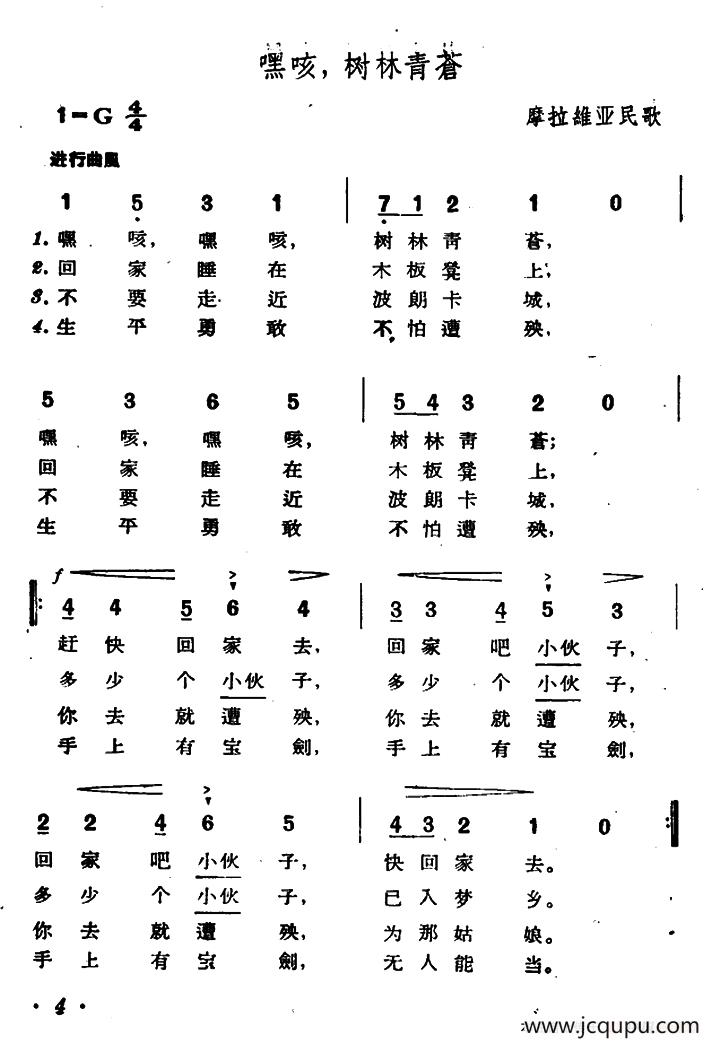 嘿咳，树林青蒼
1=G 4/4
摩拉維亚民歌
进行曲風
1 5 3 1 7 1 2 1 0
1. 嘿 咳， 嘿 咳， 树 林 青 蒼，
2. 回 家 睡 在 木 板 凳 上，
3. 不 要 走 近 波 朗 卡 城，
4. 生 平 勇 敢 不 怕 遭 殃，
5 3 6 5 5 4 3 2 0
嘿 咳， 嘿 咳， 树 林 青 蒼；
回 家 睡 在 木 板 凳 上，
不 要 走 近 波 朗 卡 城，
生 平 勇 敢 不 怕 遭 殃，
f
4 4 5 6 4 3 3 4 5 3
赶 快 回 家 去， 回 家 吧 小伙 子，
多 少 个 小伙 子， 多 少 个 小伙 子，
你 去 就 遭 殃， 你 去 就 遭 殃，
手 上 有 宝 劍， 手 上 有 宝 劍，
2 2 4 6 5 4 3 2 1 0
回 家 吧 小伙 子， 快 回 家 去。
多 少 个 小伙 子， 已 入 梦 乡。
你 去 就 遭 殃， 为 那 姑 娘。
手 上 有 宝 劍， 无 人 能 当。
· 4 ·
www.jcqupu.com